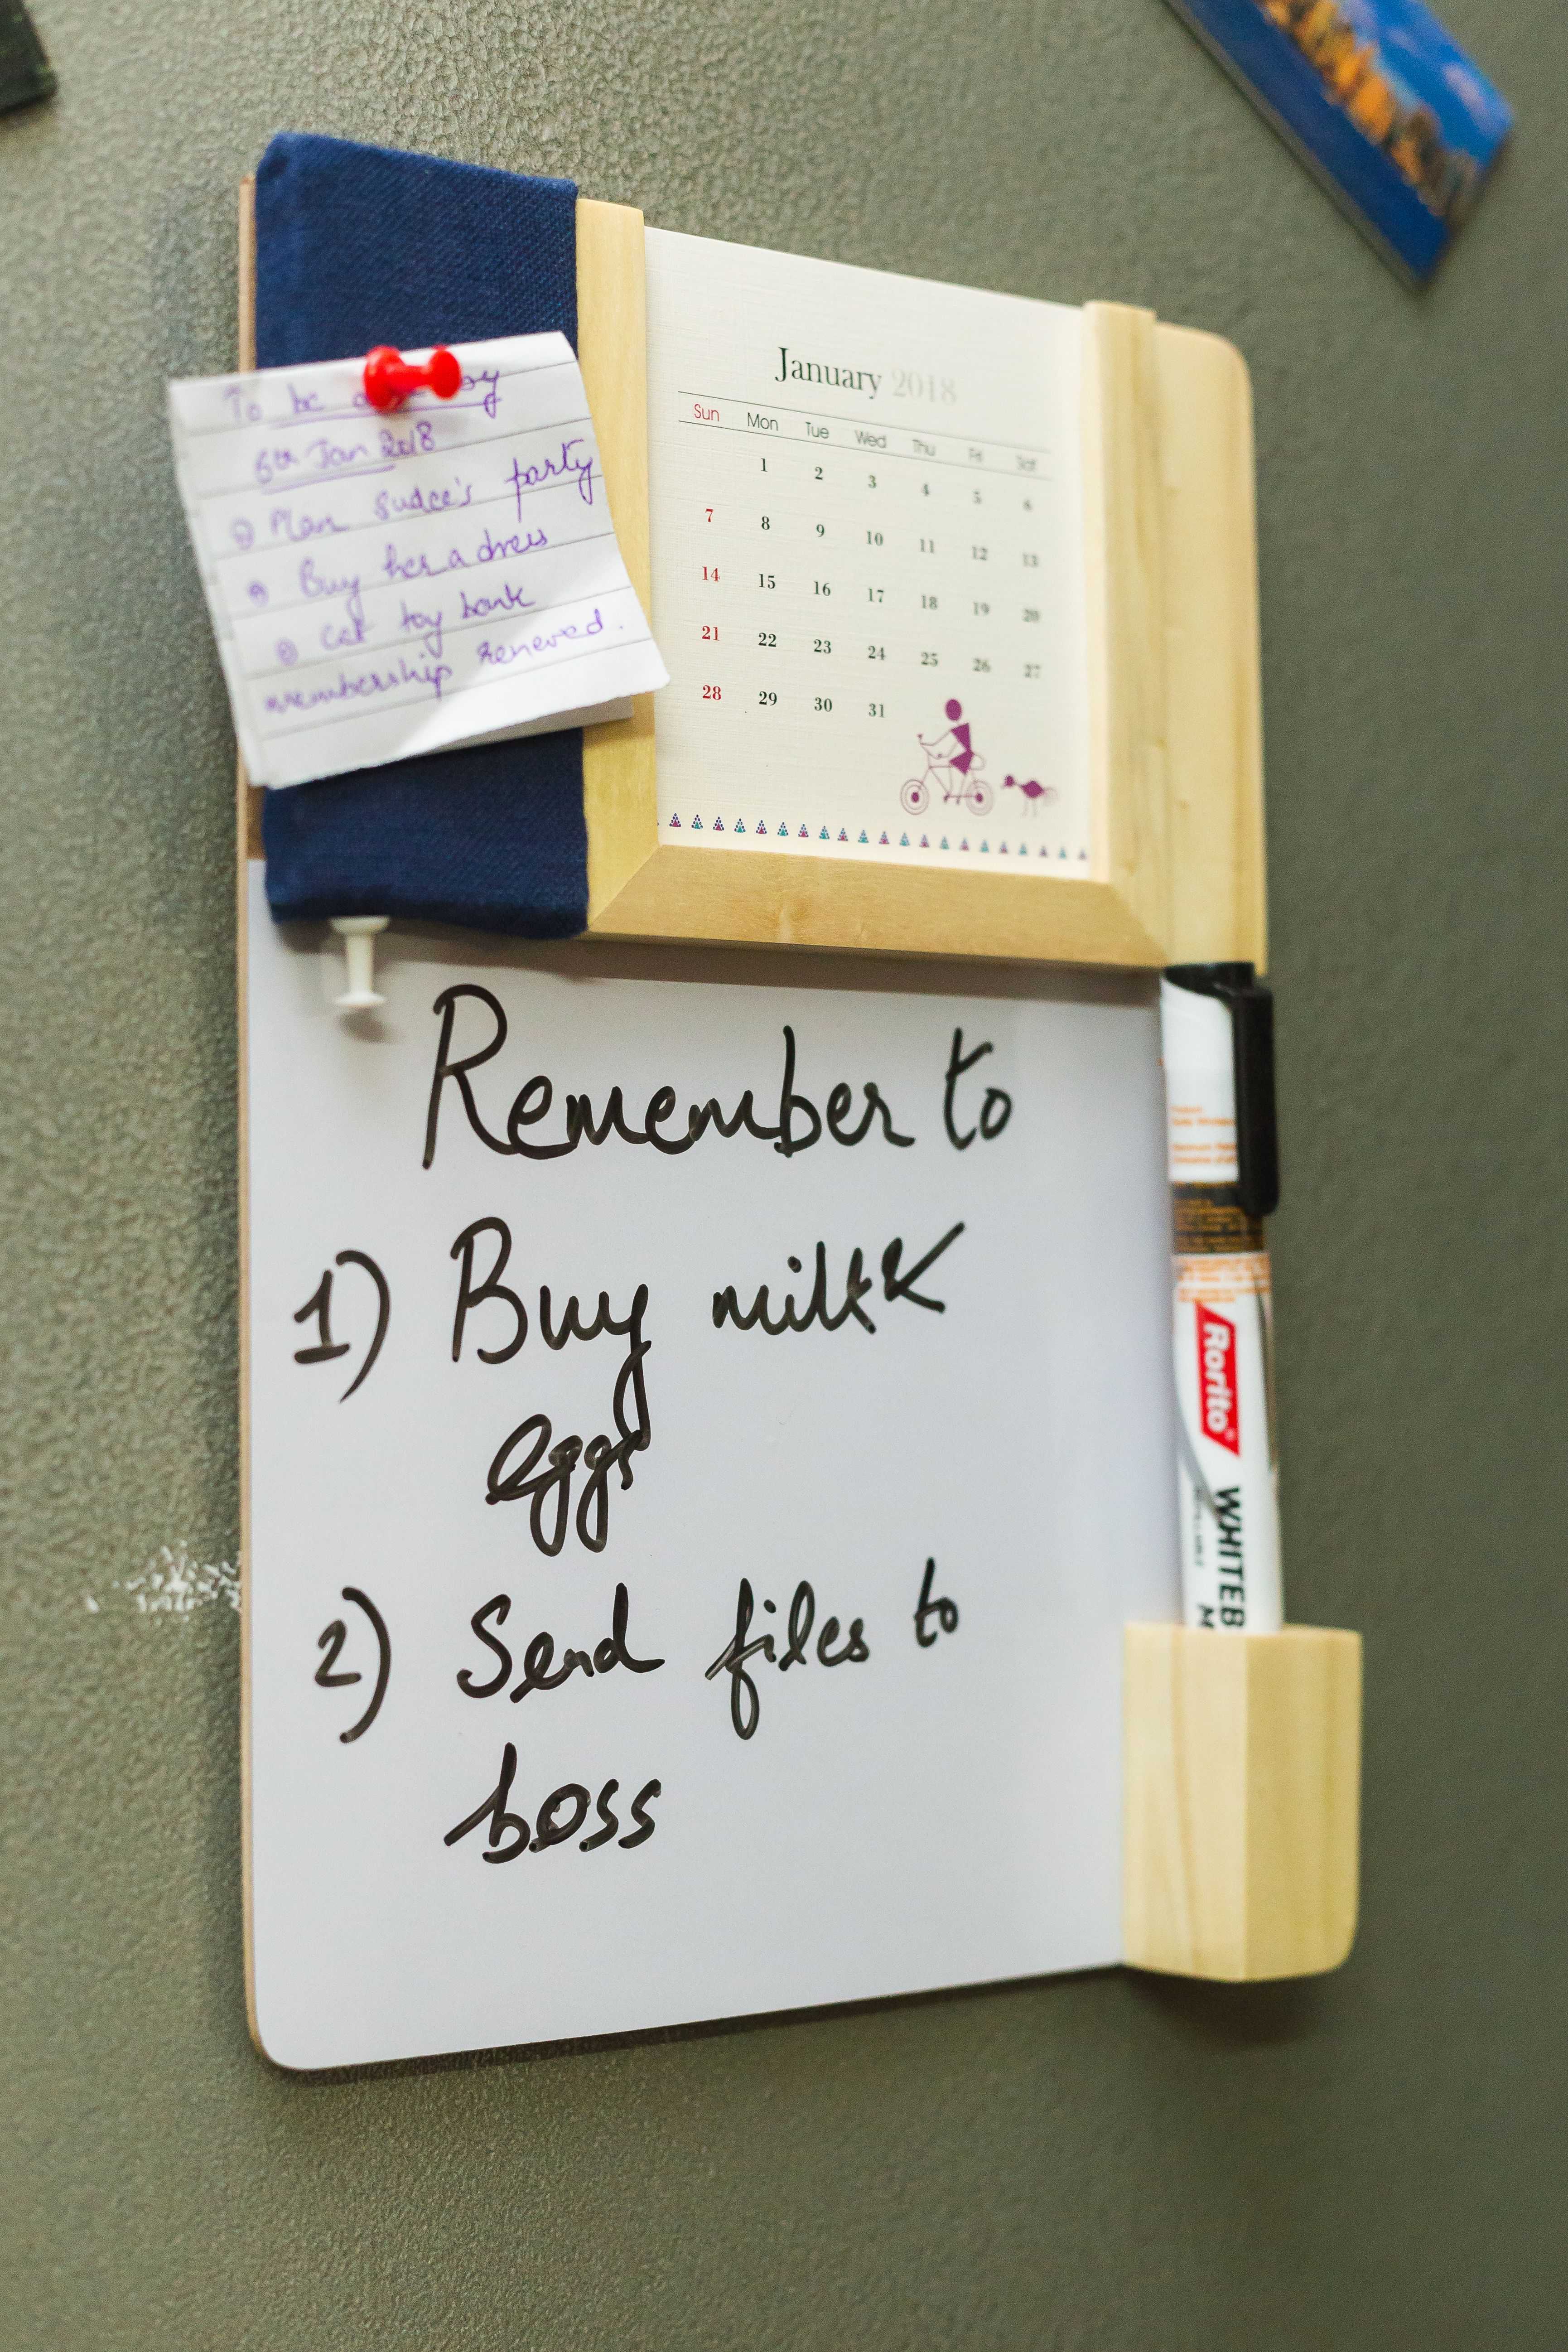 To be by
6th Jan 2018
Plan party
Buy her a dress
Get toy bank
membership renewed.
January 2018
Sun Mon Tue Wed Thu Fri Sat
1 2 3 4 5 6
7 8 9 10 11 12 13
14 15 16 17 18 19 20
21 22 23 24 25 26 27
28 29 30 31
Remember to
1) Buy milk &
eggs
2) Send files to
boss
Rorito
WHITEB